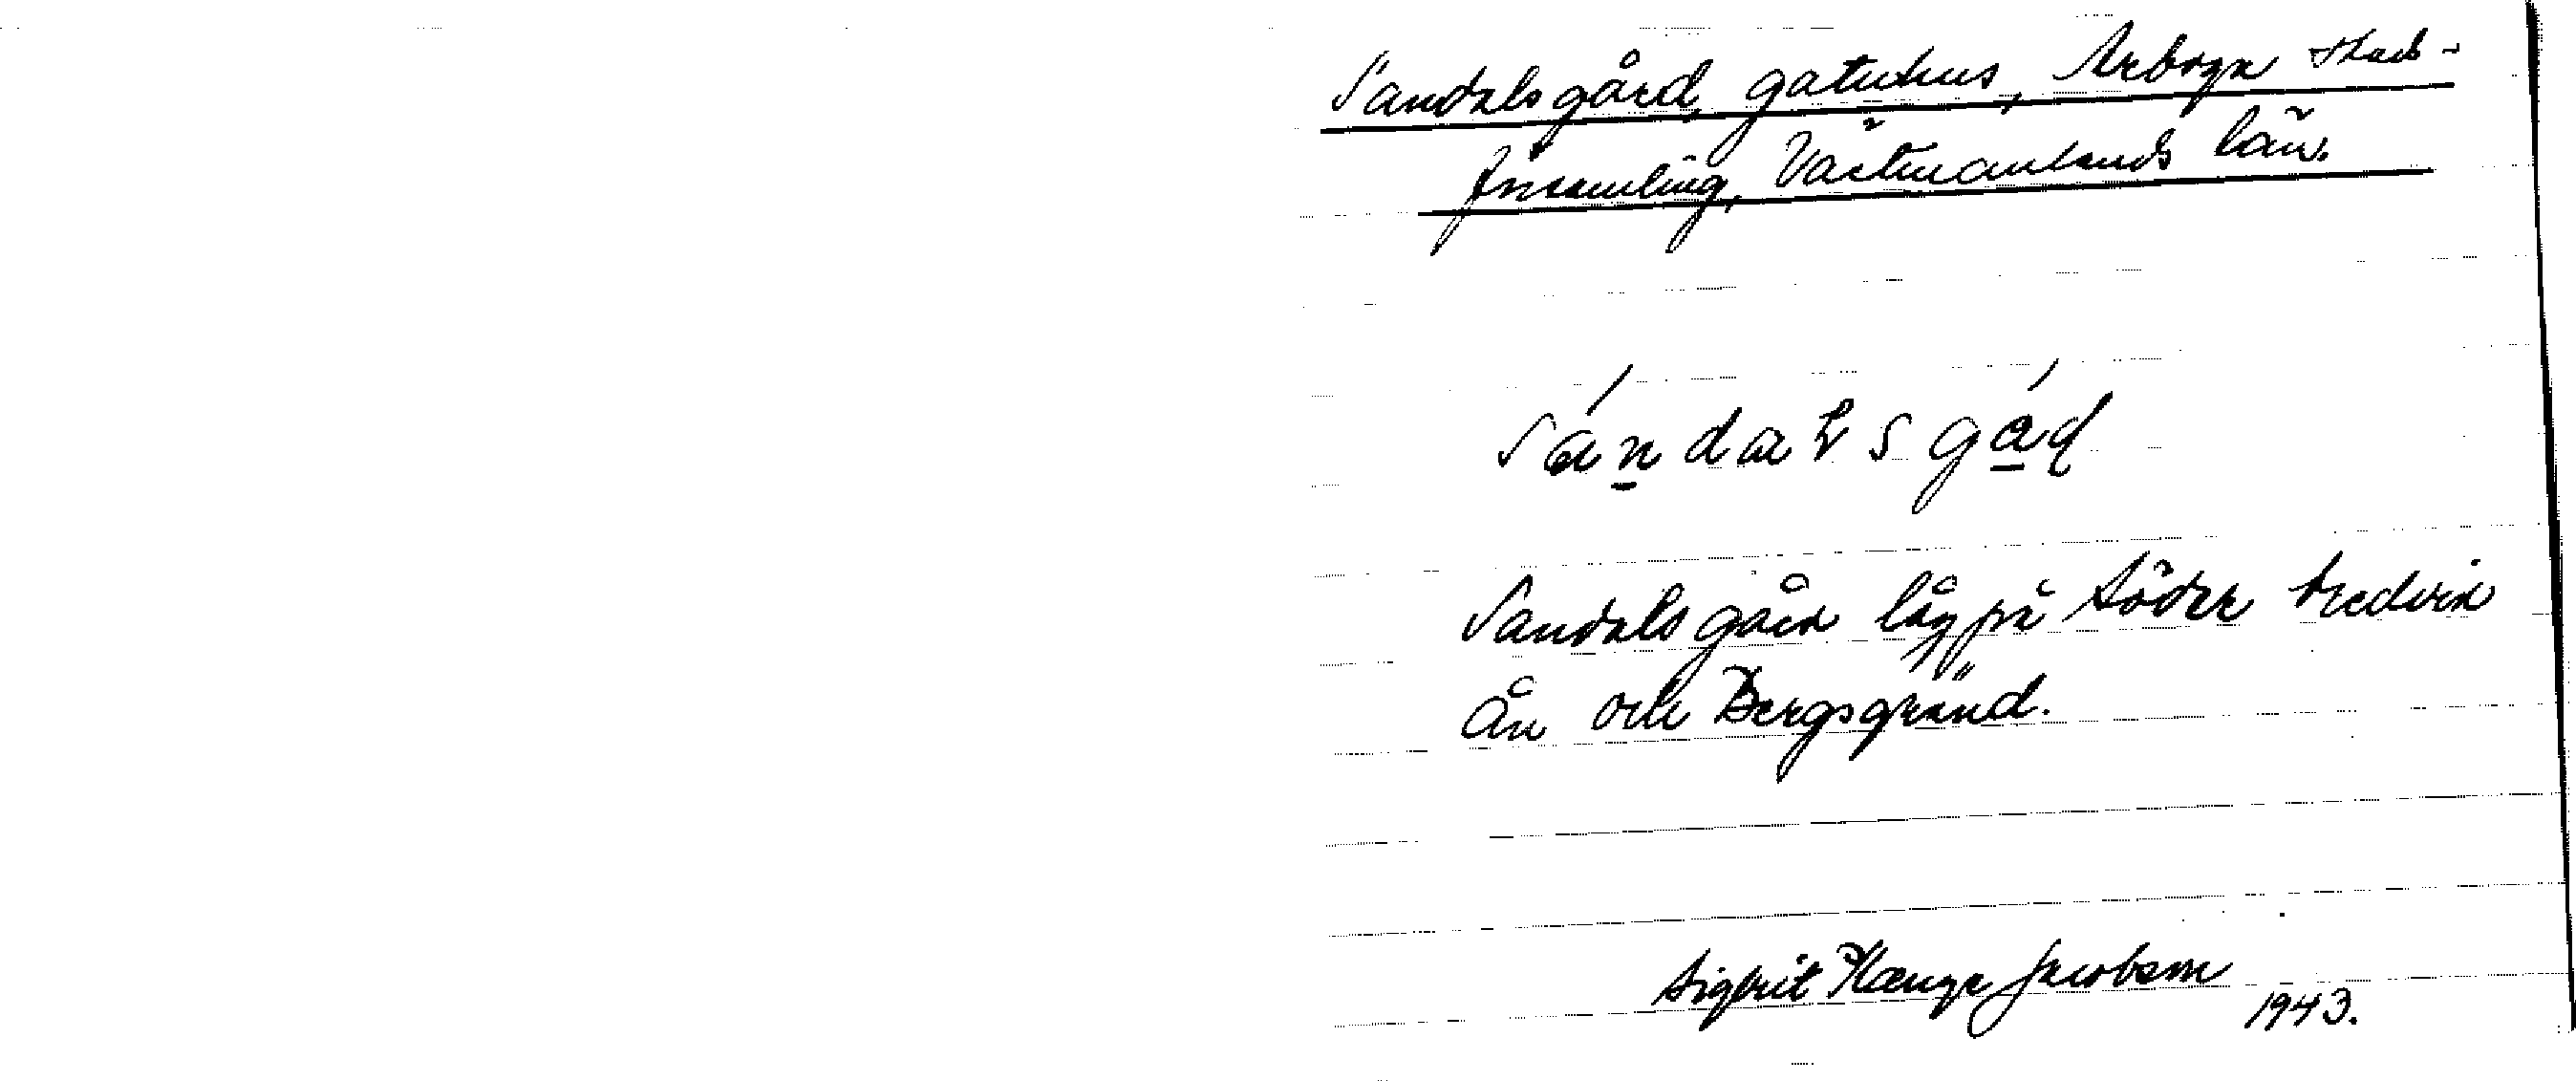 Sandalsgård, gatuhus, Arboga stads-
församling, Västmanlands län.
sándalsgád
Sandalsgård låg på Söder bredvid
Ån och Bergsgränd.
Sigbrit Plænge Jacobson
1943.